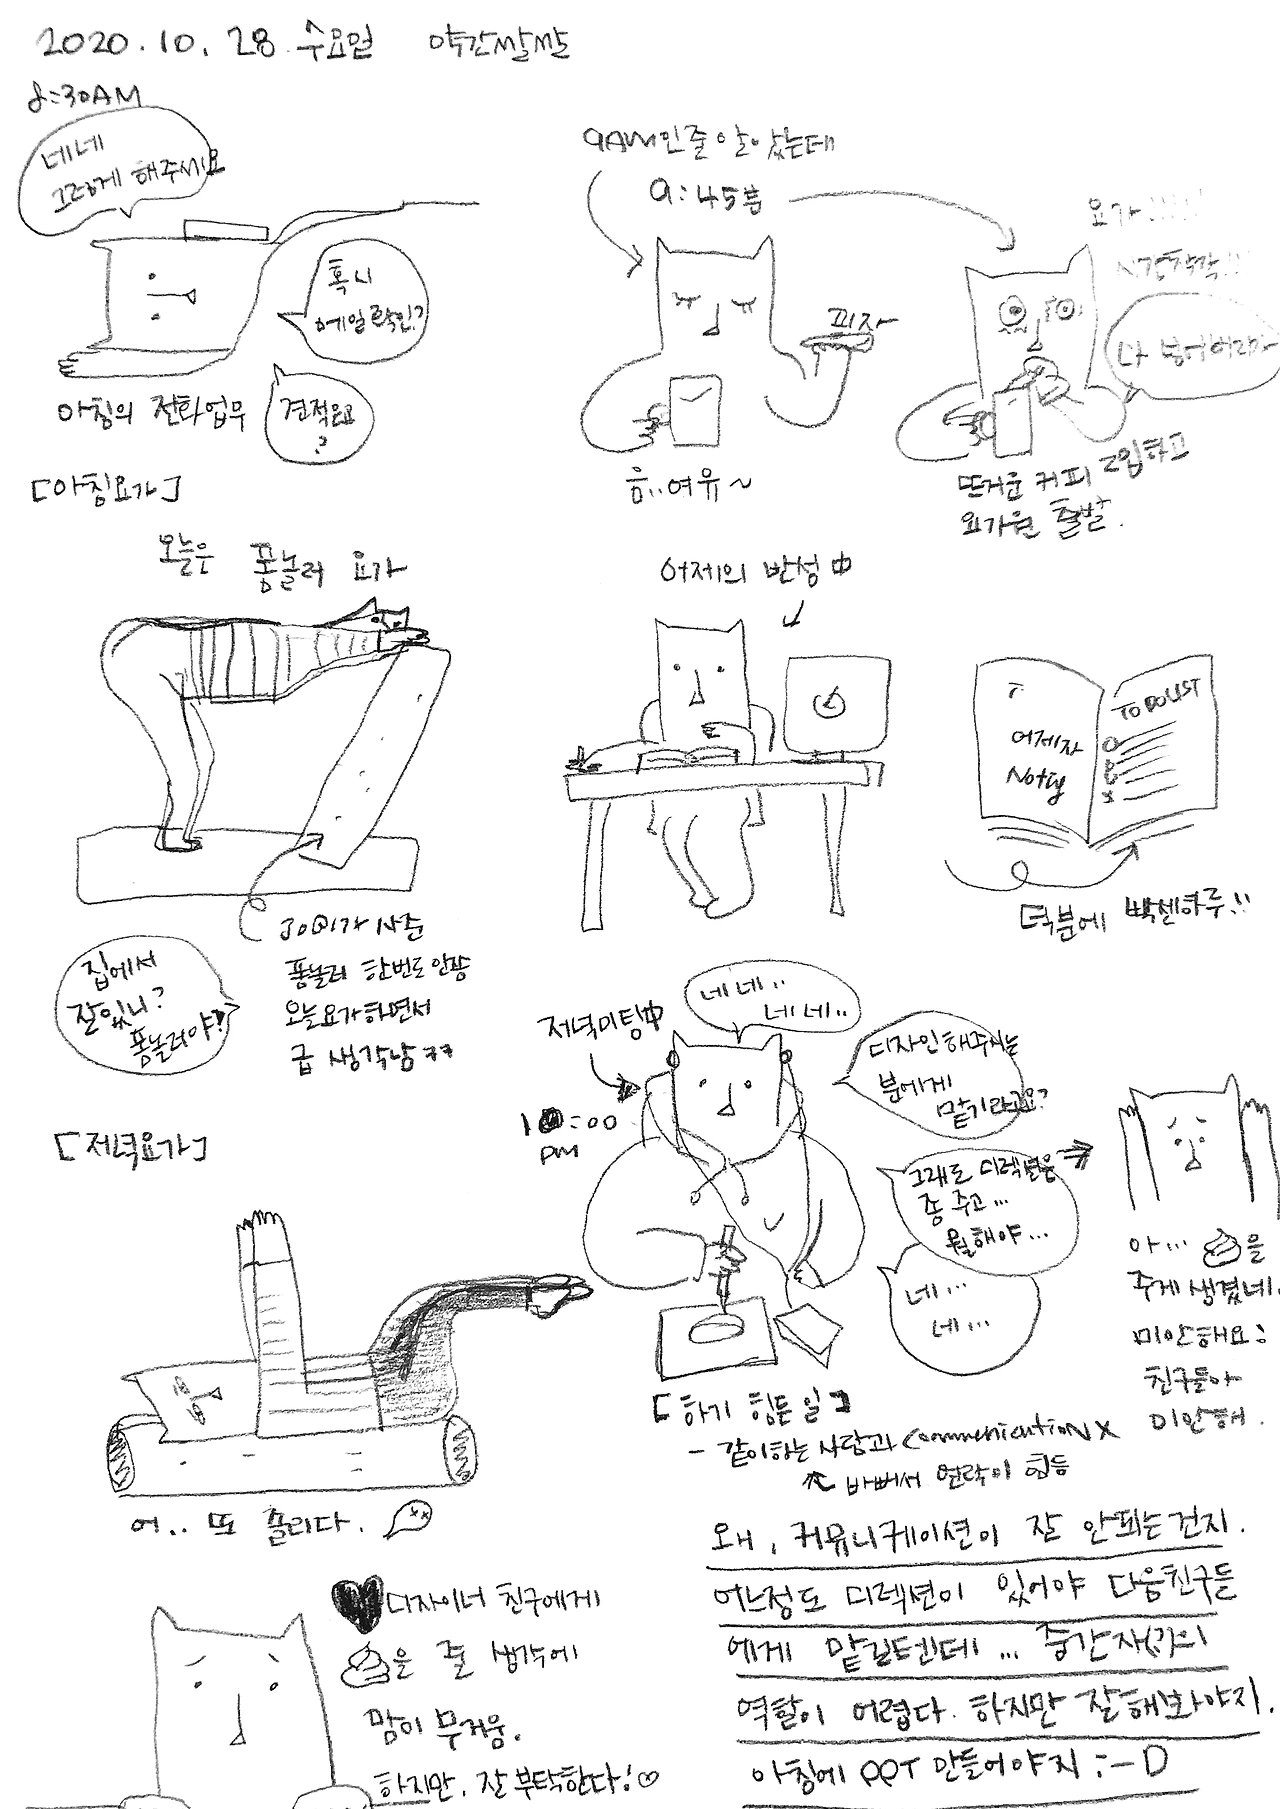 2020.10.28 수요일 약간쌀쌀
8:30AM
네네
그렇게 해주세요
혹시
메일확인?
견적요?
아침의 전화업무
9AM인줄 알았는데
9:45분
피자
흠..여유~
요가!!!!!
시간착각!!!
다 넣어버려
뜨거운 커피 2입하고
요가원 출발.
[아침요가]
오늘은 폼놀러 요가
30일가
폼놀러 한번도 안쫌
오늘요가하면서
급 생각남 ㅋㅋ
집에서
잘있니?
폼놀러야!
어제의 반성中
어제자
Noting
TO DO LIST
덕분에 빡센하루!!
[저녁요가]
어.. 또 졸리다.
저녁미팅中
10:00
PM
네네..
네네..
디자인해주시는
분에게
맡기라고요?
그래도 디렉션은
좀 주고...
뭘해야...
네...
네...
아... 을
주게 생겼네.
미안해요:
친구들아
미안해.
[하기 힘든일]
- 같이하는 사람과 communication X
바빠서 연락이 힘듬
디자이너 친구에게
을 줄 생각에
맘이 무거움.
하지만, 잘 부탁한다!♡
왜, 커뮤니케이션이 잘 안되는건지.
어느정도 디렉션이 있어야 다음친구들
에게 맡길텐데... 중간자(?)의
역할이 어렵다. 하지만 잘해봐야지.
아침에 PPT 만들어야지 :-D